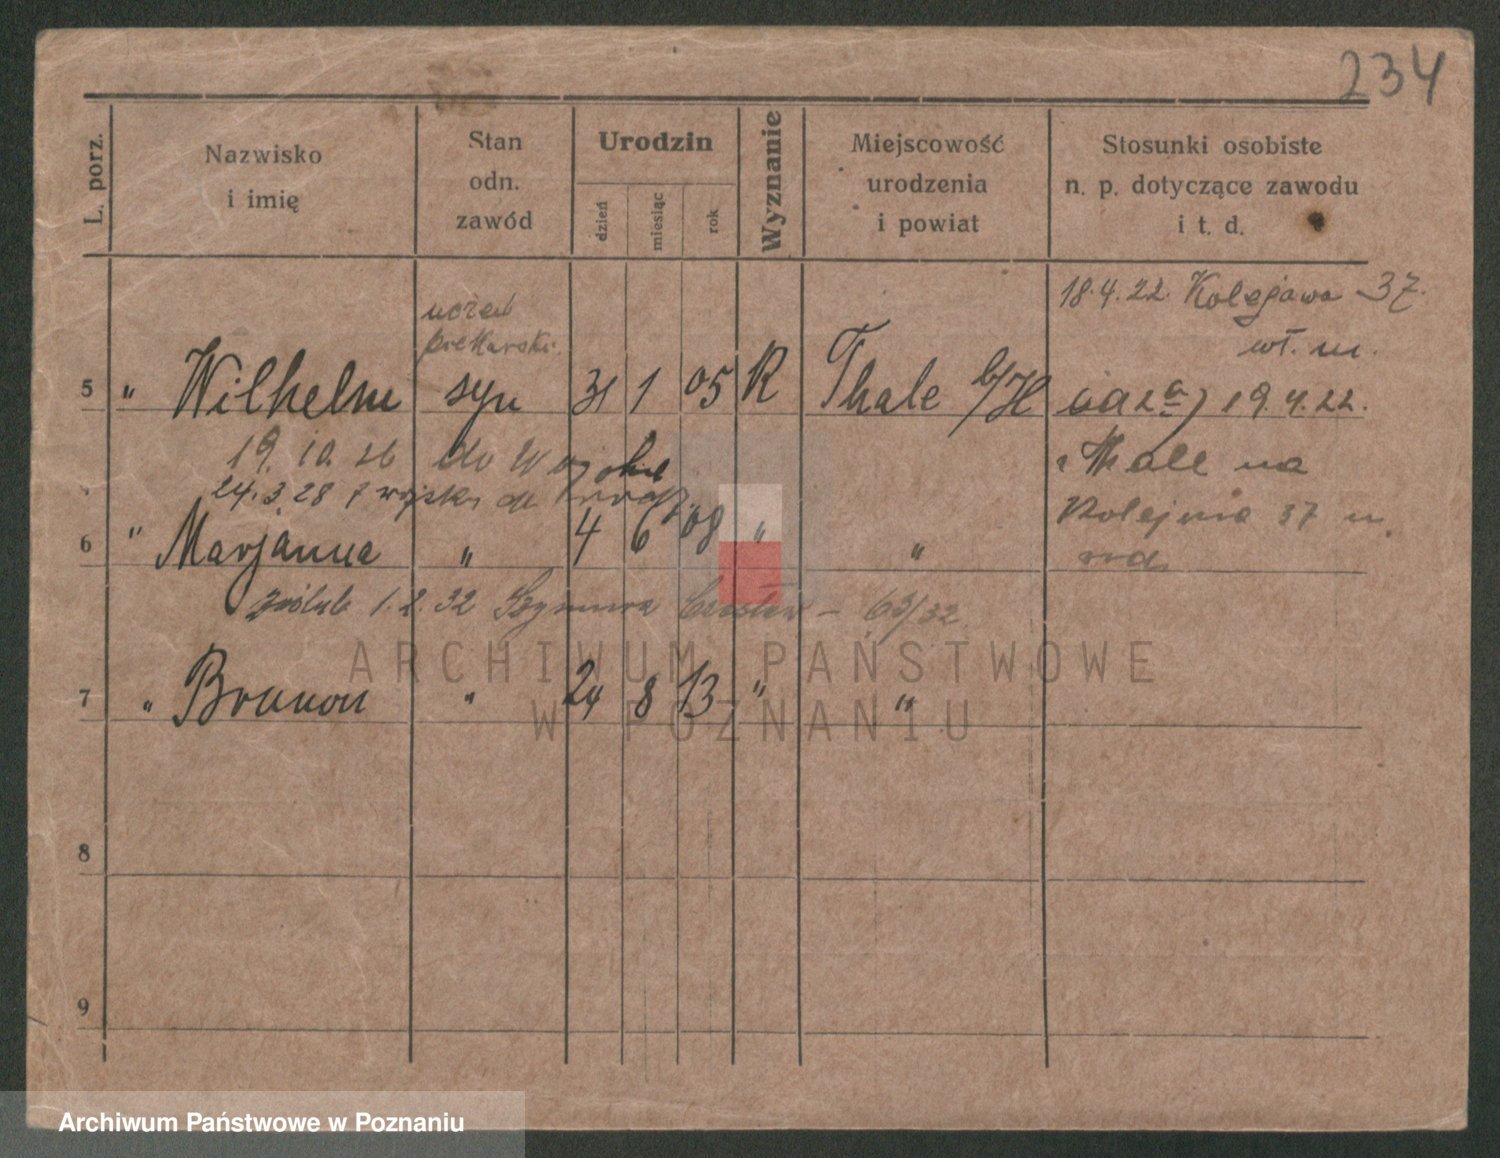 234
L. porz.
Nazwisko
i imię
Stan
odn.
zawód
Urodzin
dzień
miesiąc
rok
Wyznanie
Miejscowość
urodzenia
i powiat
Stosunki osobiste
n. p. dotyczące zawodu
i t. d.
18.4.22. Kolejowa 37.
wł. m.
uczeń
piekarski
5 " Wilhelm syn 31 1 05 R Thale b/H 19.4.22.
19.10.26 do Wojska
Thale na
24.3.28 z wojska
Kolejowa 37 m.
6 " Marjanna " 4 6 08 " "
zaślub 1.2.32 Czesław - 63/32
7 " Brunon " 24 8 13 " "
8
9
ARCHIWUM PAŃSTWOWE
W POZNANIU
Archiwum Państwowe w Poznaniu